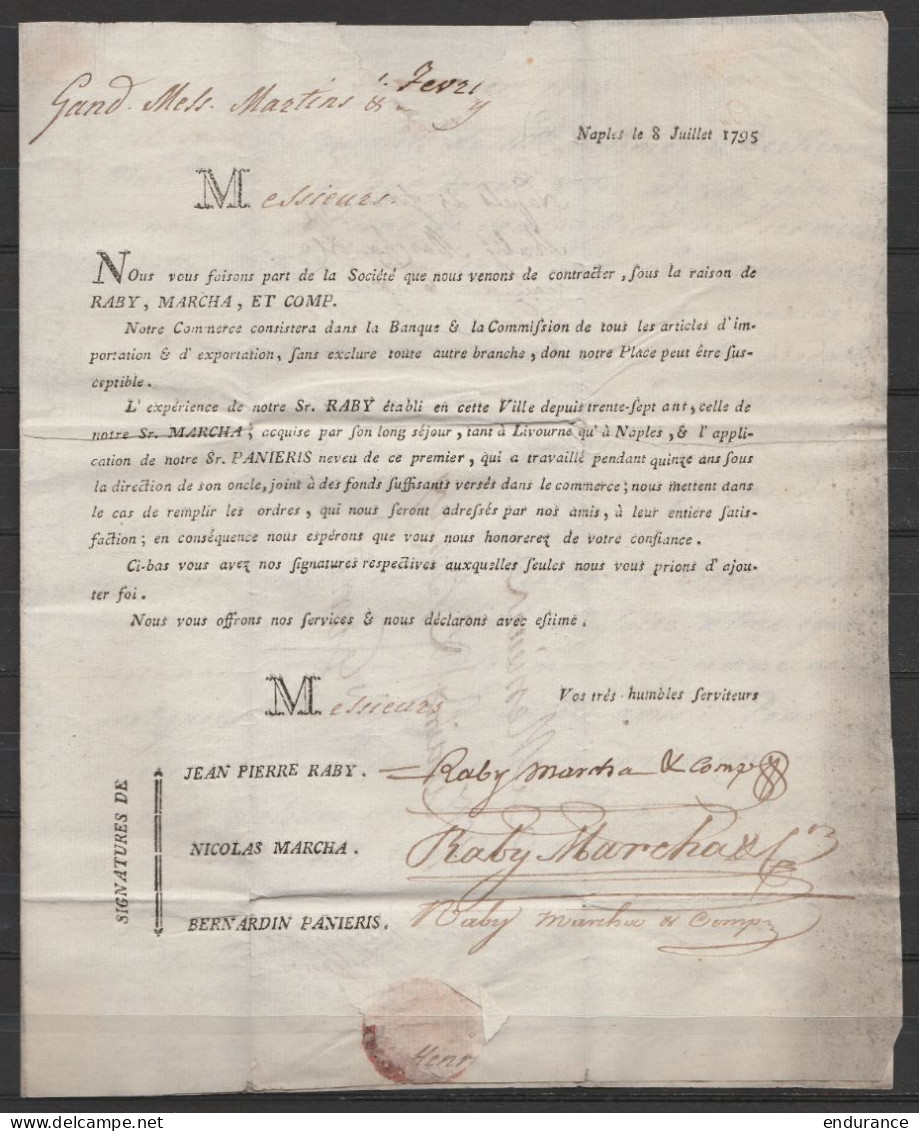 Gand. Mess. Martens &
Naples le 8 Juillet 1795
Messieurs.
NOus vous faisons part de la Société que nous venons de contracter, sous la raison de
RABY, MARCHA, ET COMP.
Notre Commerce consistera dans la Banque & la Commission de tous les articles d'im-
portation & d' exportation, sans exclure toute autre branche, dont notre Place peut être sus-
ceptible.
L' expérience de notre Sr. RABY établi en cette Ville depuis trente-sept ans, celle de
notre Sr. MARCHA; acquise par son long séjour, tant à Livourne qu' à Naples, & l' appli-
cation de notre Sr. PANIERIS neveu de ce premier, qui a travaillé pendant quinze ans sous
la direction de son oncle, joint à des fonds suffisants versés dans le commerce; nous mettent dans
le cas de remplir les ordres, qui nous seront adressés par nos amis, à leur entiére satis-
faction; en conséquence nous espérons que vous nous honorerez de votre confiance.
Ci-bas vous avez nos signatures respectives auxquelles seules nous vous prions d' ajou-
ter foi.
Nous vous offrons nos services & nous déclarons avec estime.
Messieurs
Vos trés-humbles serviteurs
SIGNATURES DE
JEAN PIERRE RABY. Raby Marcha & Comp
NICOLAS MARCHA. Raby Marcha & Co
BERNARDIN PANIERIS. Raby Marcha & Comp
Hens
endurance